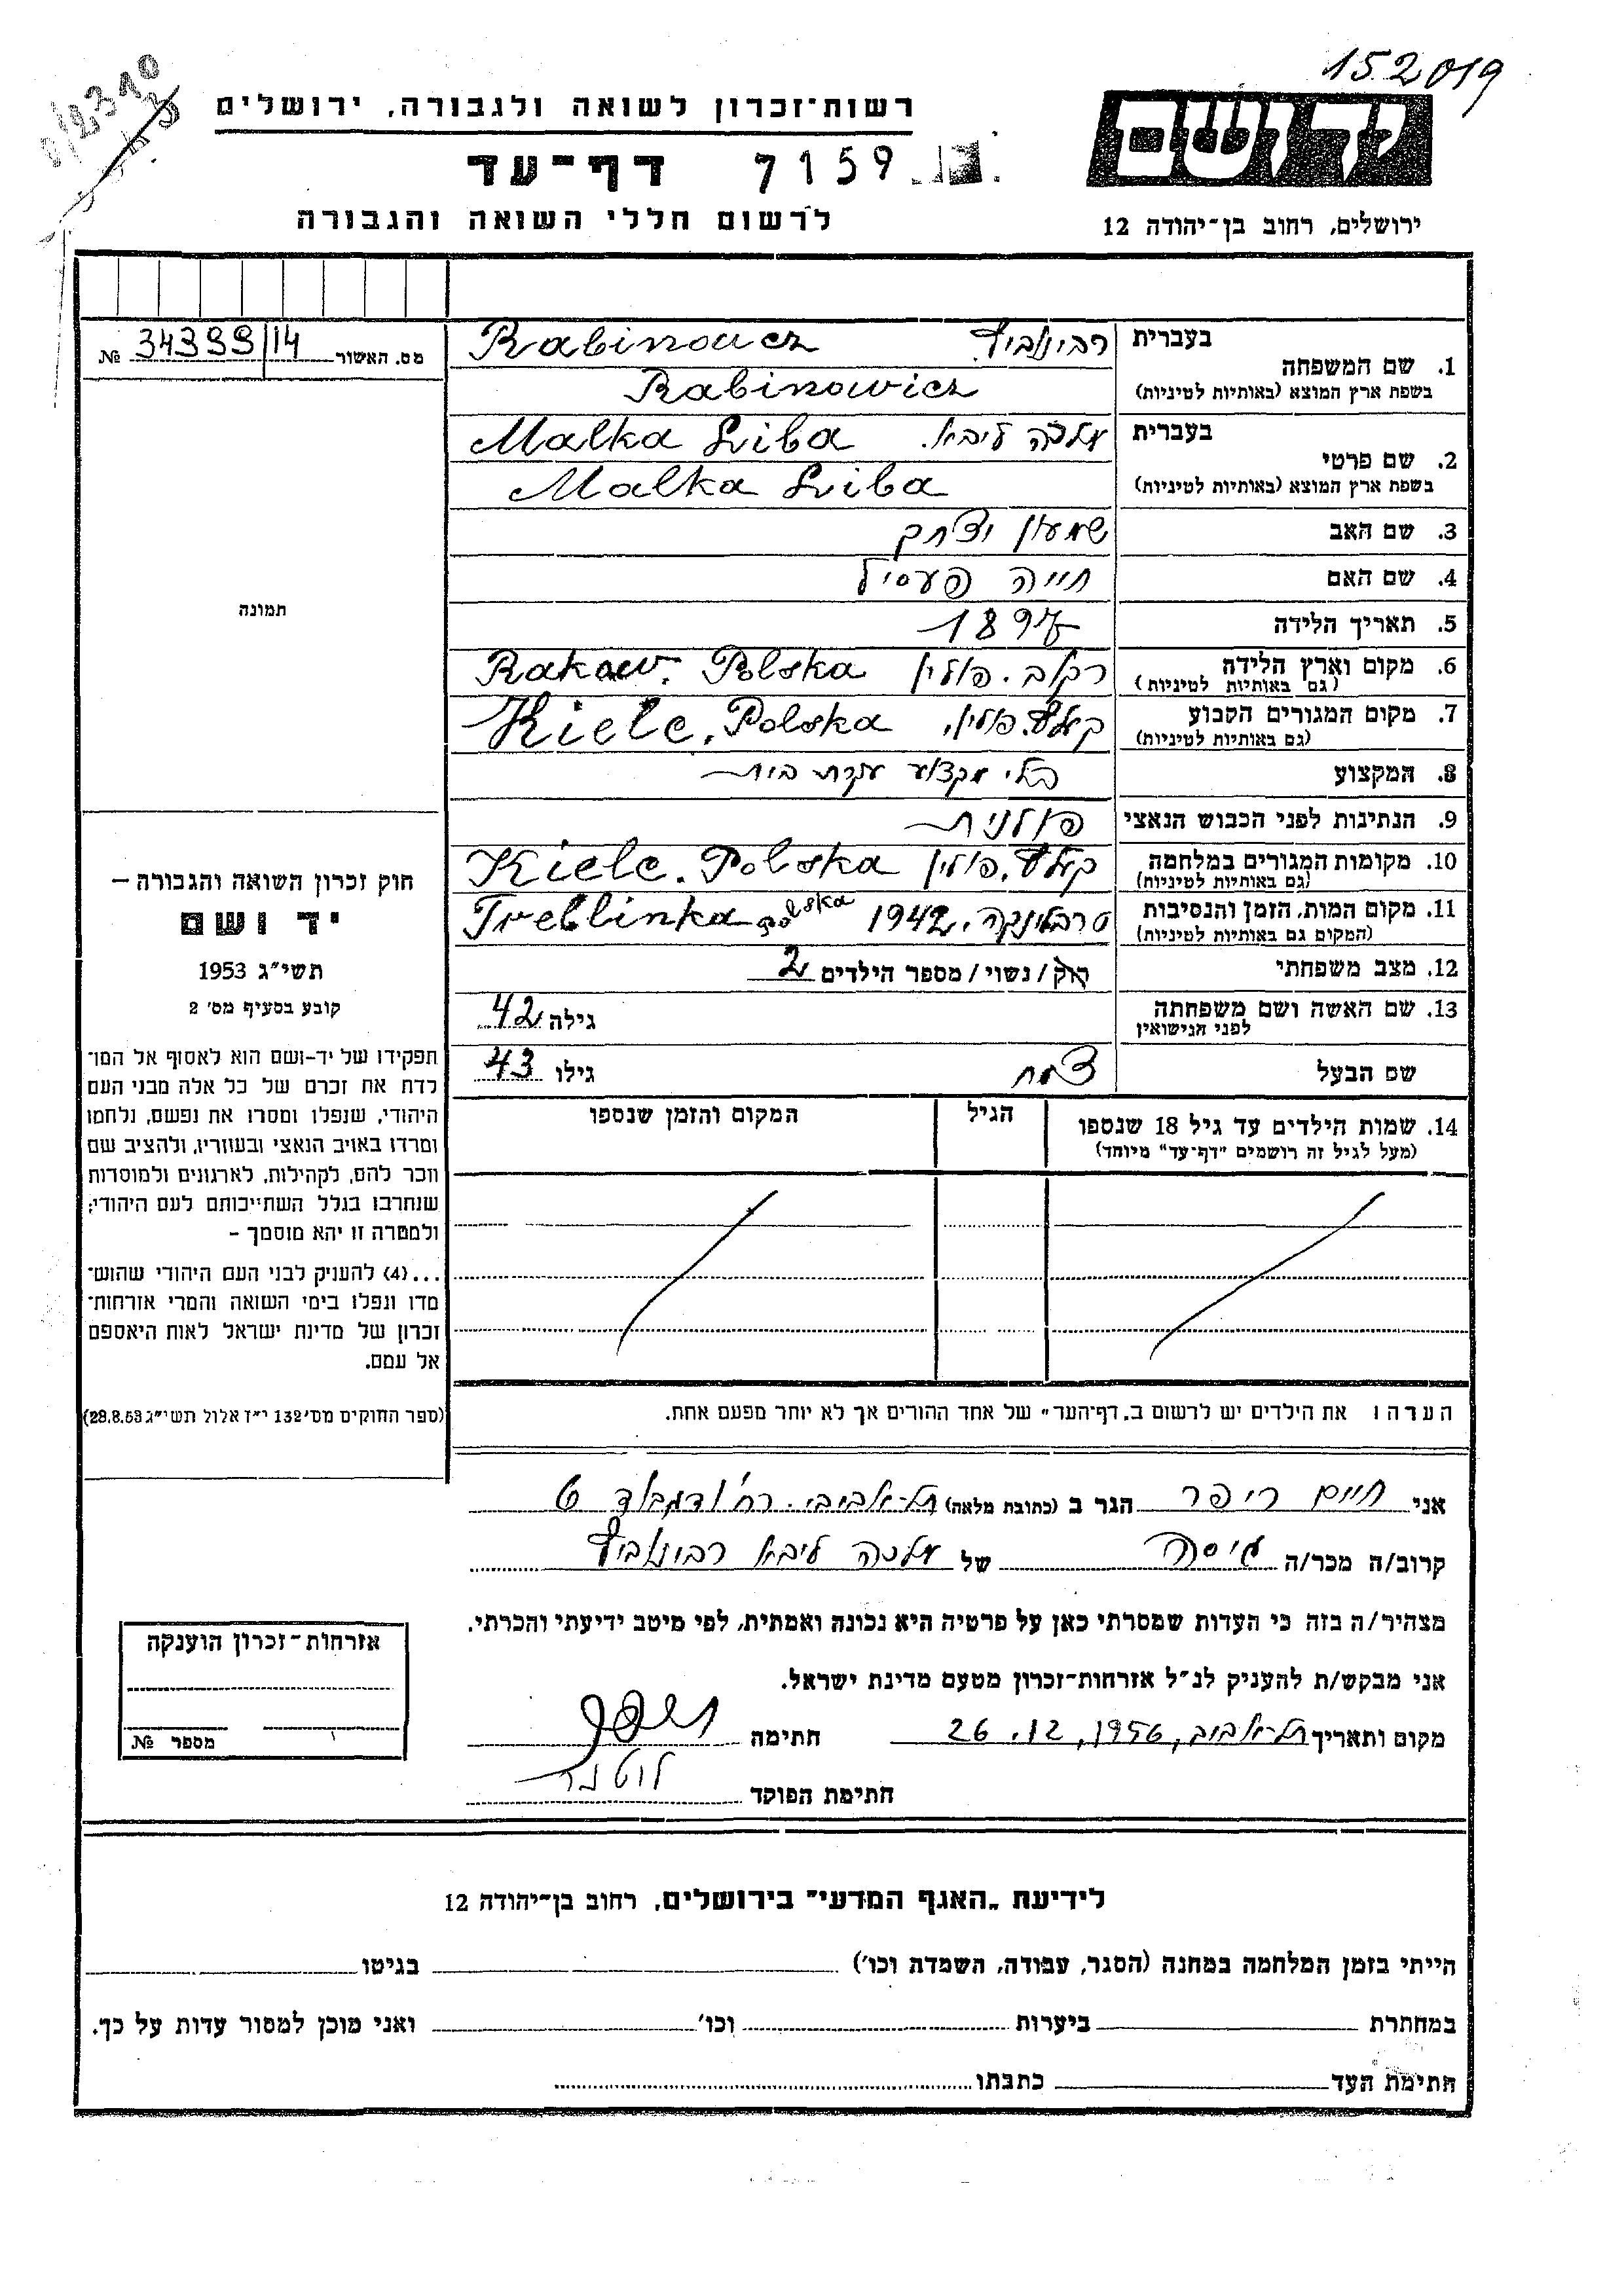 15.2019
8/2310
רשות־זכרון לשואה ולגבורה, ירושלים
יד ושם
דף־עד 7159
לרשום חללי השואה והגבורה
ירושלים, רחוב בן־יהודה 12
מס. האשור 34399/14 №
1. שם המשפחה בעברית רבינוביץ Rabinowcz
בשפת ארץ המוצא (באותיות לטיניות) Rabinowicz
2. שם פרטי בעברית מלכה ליבא. Malka Liba
בשפת ארץ המוצא (באותיות לטיניות) Malka Liba
3. שם האב שמעון יצחק
4. שם האם חייה פעסיל
5. תאריך הלידה 1897
6. מקום וארץ הלידה (גם באותיות לטיניות) רקוב. פולין Rakow. Polska
7. מקום המגורים הקבוע (גם באותיות לטיניות) קעלץ. פולין. Kiele. Polska
8. המקצוע בלי מקצוע עקרת בית
9. הנתינות לפני הכבוש הנאצי פולנית
10. מקומות המגורים במלחמה (גם באותיות לטיניות) קעלץ. פולין Kiele. Polska
11. מקום המות, הזמן והנסיבות (המקום גם באותיות לטיניות) טרבלינקה. 1942 Treblinka Polska
12. מצב משפחתי רוק / נשוי / מספר הילדים 2
13. שם האשה ושם משפחתה לפני הנישואין גילה 42
שם הבעל צמח גילו 43
14. שמות הילדים עד גיל 18 שנספו (מעל לגיל זה רושמים "דף־עד" מיוחד) הגיל המקום והזמן שנספו
תמונה
חוק זכרון השואה והגבורה –
יד ושם
תשי"ג 1953
קובע בסעיף מס' 2
תפקידו של יד־ושם הוא לאסוף אל המו־
לדת את זכרם של כל אלה מבני העם
היהודי, שנפלו ומסרו את נפשם, נלחמו
ומרדו באויב הנאצי ובעוזריו, ולהציב שם
וזכר להם, לקהילות, לארגונים ולמוסדות
שנחרבו בגלל השתייכותם לעם היהודי;
ולמטרה זו יהא מוסמך –
...(4) להעניק לבני העם היהודי שהוש־
מדו ונפלו בימי השואה והמרי אזרחות־
זכרון של מדינת ישראל לאות היאספם
אל עמם.
(ספר החוקים מס' 132 י"ז אלול תשי"ג 28.8.53)
הערה: את הילדים יש לרשום ב„דף־העד" של אחד ההורים אך לא יותר מפעם אחת.
אני חיים ריפר הגר ב (כתובת מלאה) תל-אביב. רח'
קרוב/ה מכר/ה גיסה של מלכה ליבא רבינוביץ
מצהיר/ה בזה כי העדות שמסרתי כאן על פרטיה היא נכונה ואמתית, לפי מיטב ידיעתי והכרתי.
אני מבקש/ת להעניק לנ"ל אזרחות־זכרון מטעם מדינת ישראל.
מקום ותאריך תל-אביב, 26.12.1956 חתימה
חתימת הפוקד
אזרחות־זכרון הוענקה
מספר №
לידיעת „האגף המדעי" בירושלים, רחוב בן־יהודה 12
הייתי בזמן המלחמה במחנה (הסגר, עבודה, השמדה וכו') בגיטו
במחתרת ביערות וכו' ואני מוכן למסור עדות על כך.
חתימת העד כתבתו